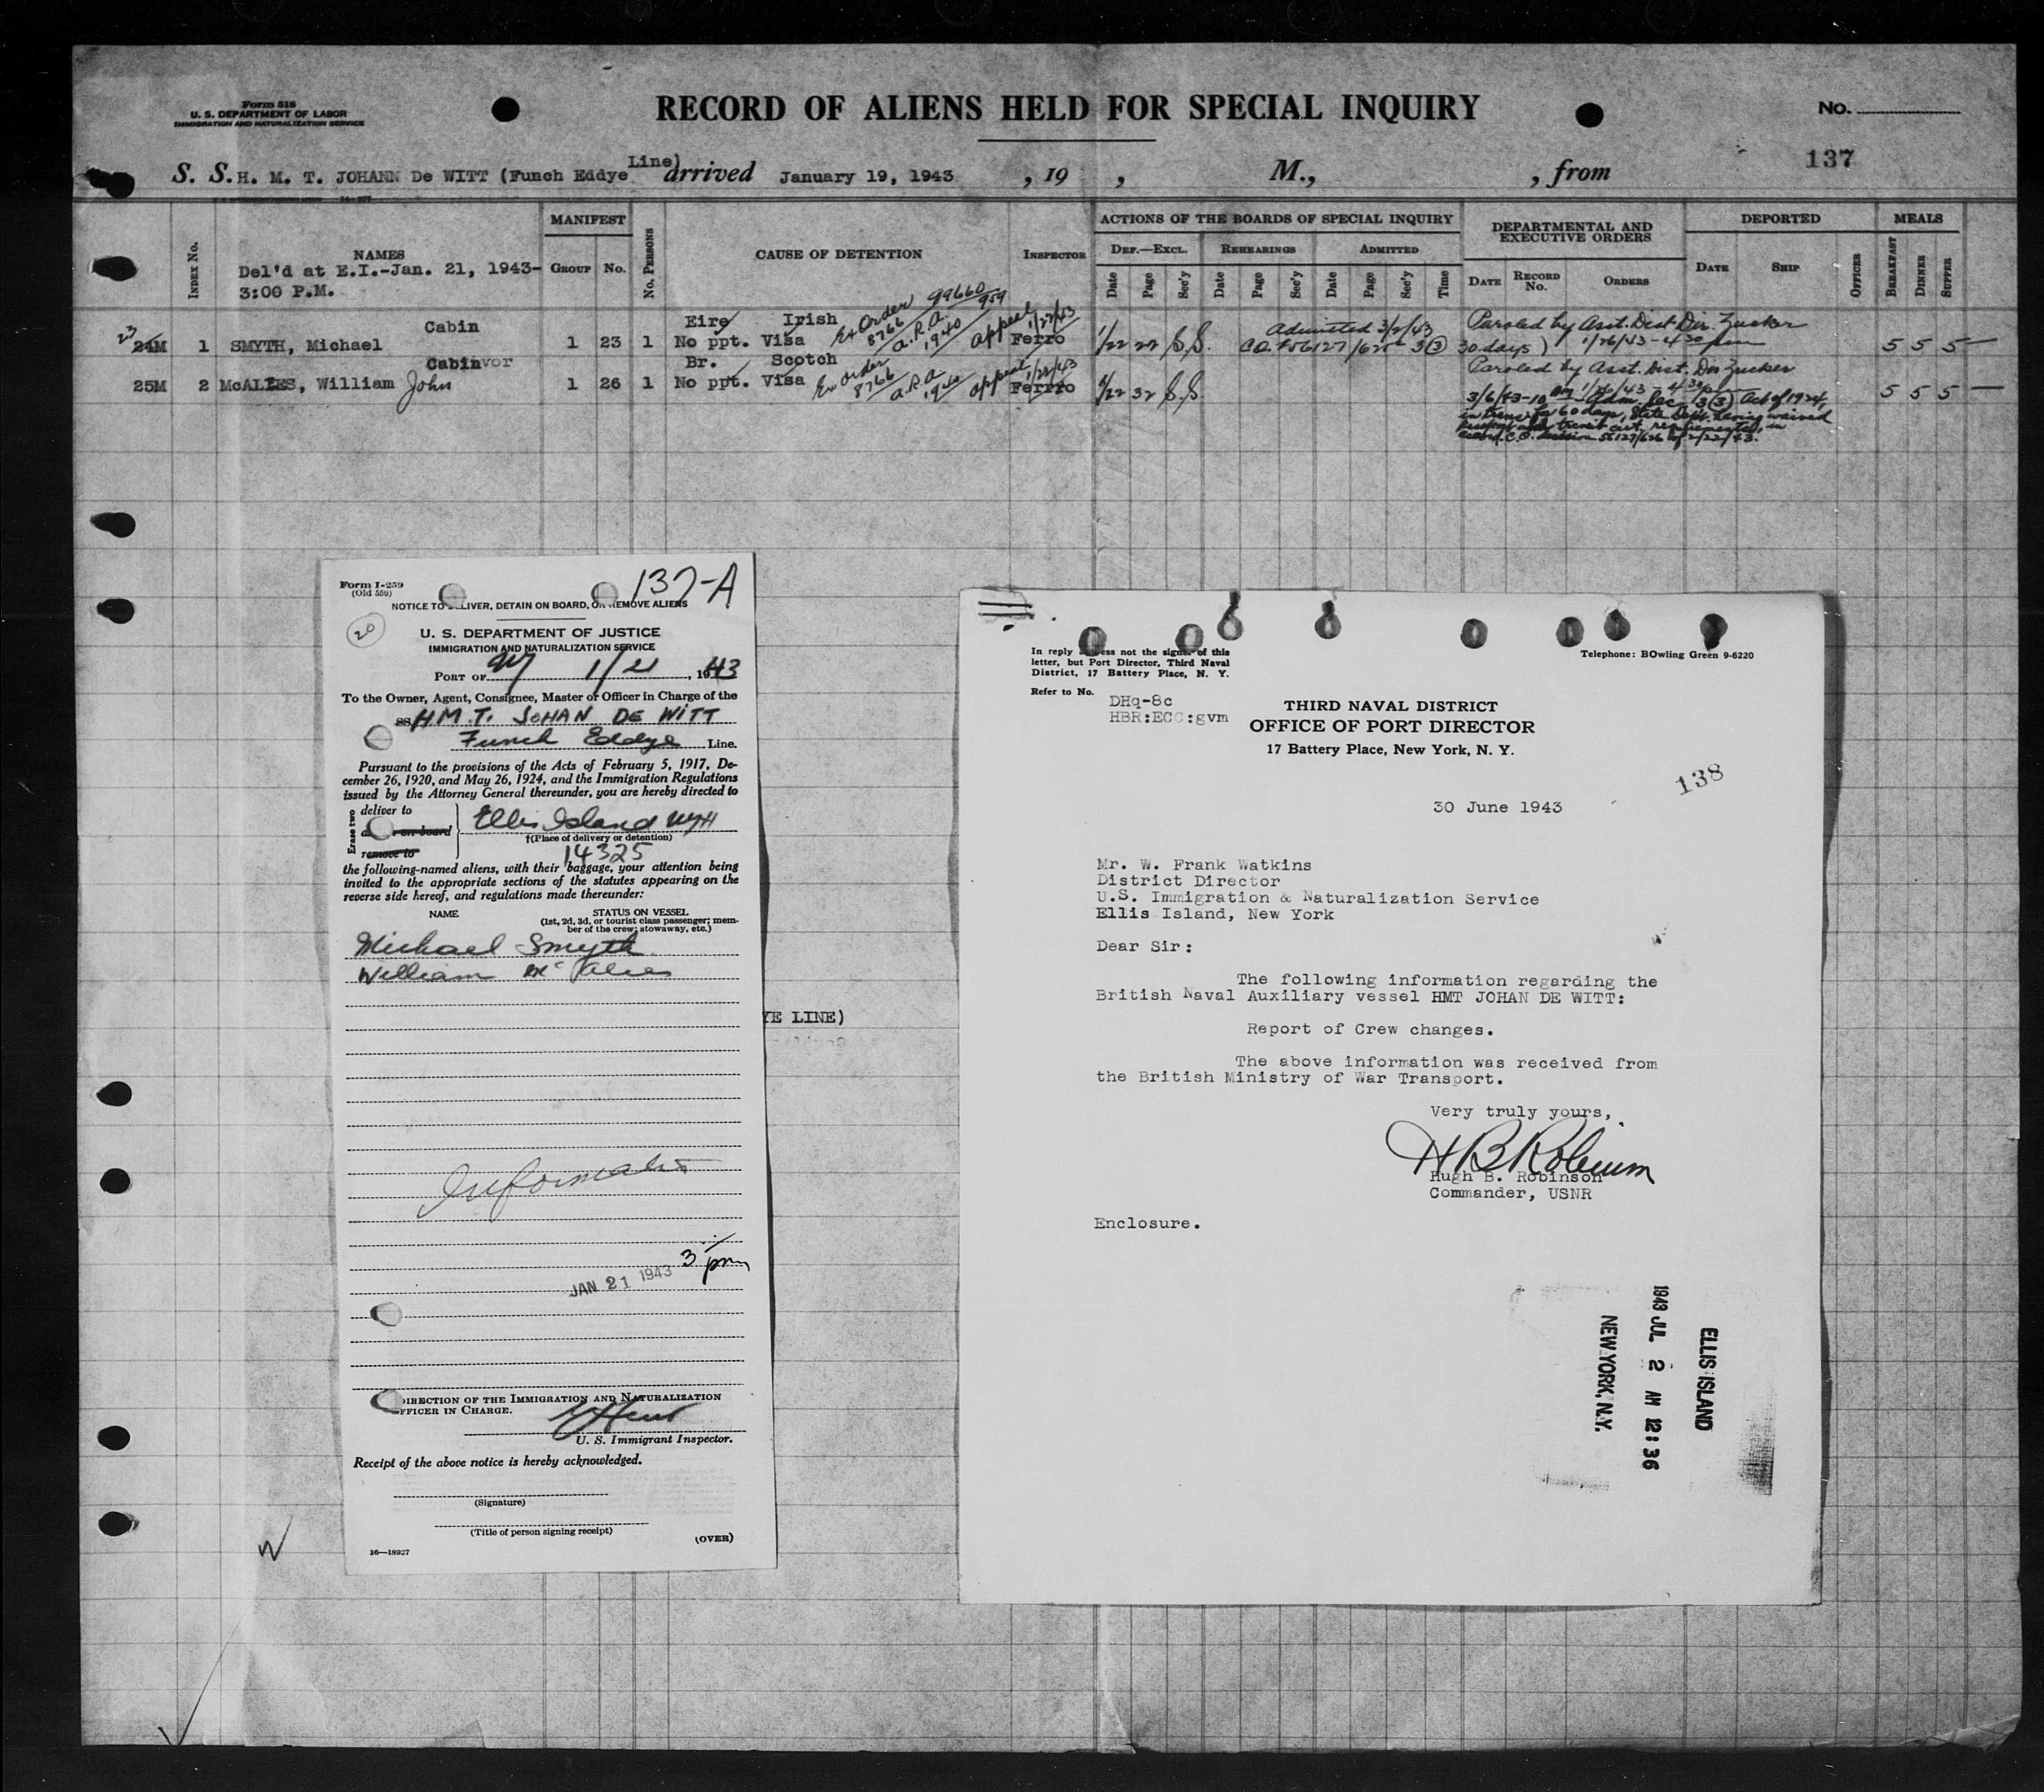 Form 518
U. S. DEPARTMENT OF LABOR
IMMIGRATION AND NATURALIZATION SERVICE
RECORD OF ALIENS HELD FOR SPECIAL INQUIRY
No.
137
S. S. H. M. T. JOHANN De WITT (Funch Eddye Line) arrived January 19, 1943, 19 , M., , from
Index No.
NAMES
Del'd at E.I.-Jan. 21, 1943-
3:00 P.M.
MANIFEST
GROUP No.
No. PERSONS
CAUSE OF DETENTION
INSPECTOR
ACTIONS OF THE BOARDS OF SPECIAL INQUIRY
DEF.—EXCL. REHEARINGS ADMITTED
Date Page Sec'y Date Page Sec'y Date Page Sec'y Time
DEPARTMENTAL AND
EXECUTIVE ORDERS
DATE RECORD No. ORDERS
DEPORTED
DATE SHIP
OFFICER
MEALS
BREAKFAST DINNER SUPPER
23
24M 1 SMYTH, Michael Cabin 1 23 1 Eire Irish
No ppt. Visa Ex Order 8766 A.R.A. 1940 99660 959 Appeal 1/22/43 Ferro 1/22 22 S.S. Admitted 3/2/43
C.O. 56127/625 3(3) 30 days) Paroled by Asst. Dist. Dir. Zucker
1/26/43 - 4 30 pm 5 5 5 —
25M 2 McALIES, William John Cabin vor 1 26 1 Br. Scotch
No ppt. Visa Ex Order 8766 A.R.A. 1940 Appeal 1/22/43 Ferro 1/22 32 S.S. Paroled by Asst. Dist. Dir. Zucker
1/26/43 - 4 30 5 5 5 —
3/6/43-10 am Adm. Sec 3(3) Act of 1924,
in trans. for 60 days, State Dept. having waived
passport and transit cert. requirements, in
accord. C.O. decision 56127/626 of 2/22/43.
Form I-259
(Old 559)
137-A
NOTICE TO DELIVER, DETAIN ON BOARD, OR REMOVE ALIENS
20
U. S. DEPARTMENT OF JUSTICE
IMMIGRATION AND NATURALIZATION SERVICE
PORT OF NY 1/21, 1943
To the Owner, Agent, Consignee, Master or Officer in Charge of the
SS HM.T. JOHAN DE WITT
Funch Eddye Line.
Pursuant to the provisions of the Acts of February 5, 1917, De-
cember 26, 1920, and May 26, 1924, and the Immigration Regulations
issued by the Attorney General thereunder, you are hereby directed to
Erase two
deliver to
on board
remove to
Ellis Island NYH
†(Place of delivery or detention)
14325
the following-named aliens, with their baggage, your attention being
invited to the appropriate sections of the statutes appearing on the
reverse side hereof, and regulations made thereunder:
NAME
STATUS ON VESSEL
(1st, 2d, 3d, or tourist class passenger; mem-
ber of the crew; stowaway, etc.)
Michael Smyth
William McAlies
JAN 21 1943 3 pm
DIRECTION OF THE IMMIGRATION AND NATURALIZATION
OFFICER IN CHARGE.
U. S. Immigrant Inspector.
Receipt of the above notice is hereby acknowledged.
(Signature)
(Title of person signing receipt)
16—18927
(OVER)
YE LINE)
In reply address not the signer of this
letter, but Port Director, Third Naval
District, 17 Battery Place, N. Y.
Refer to No.
DHq-8c
HBR:ECC:gvm
Telephone: BOwling Green 9-6220
THIRD NAVAL DISTRICT
OFFICE OF PORT DIRECTOR
17 Battery Place, New York, N. Y.
138
30 June 1943
Mr. W. Frank Watkins
District Director
U.S. Immigration & Naturalization Service
Ellis Island, New York
Dear Sir:
The following information regarding the
British Naval Auxiliary vessel HMT JOHAN DE WITT:
Report of Crew changes.
The above information was received from
the British Ministry of War Transport.
Very truly yours,
H B Robinson
Hugh B. Robinson
Commander, USNR
Enclosure.
ELLIS ISLAND
1943 JUL 2 AM 12:36
NEW YORK, N.Y.